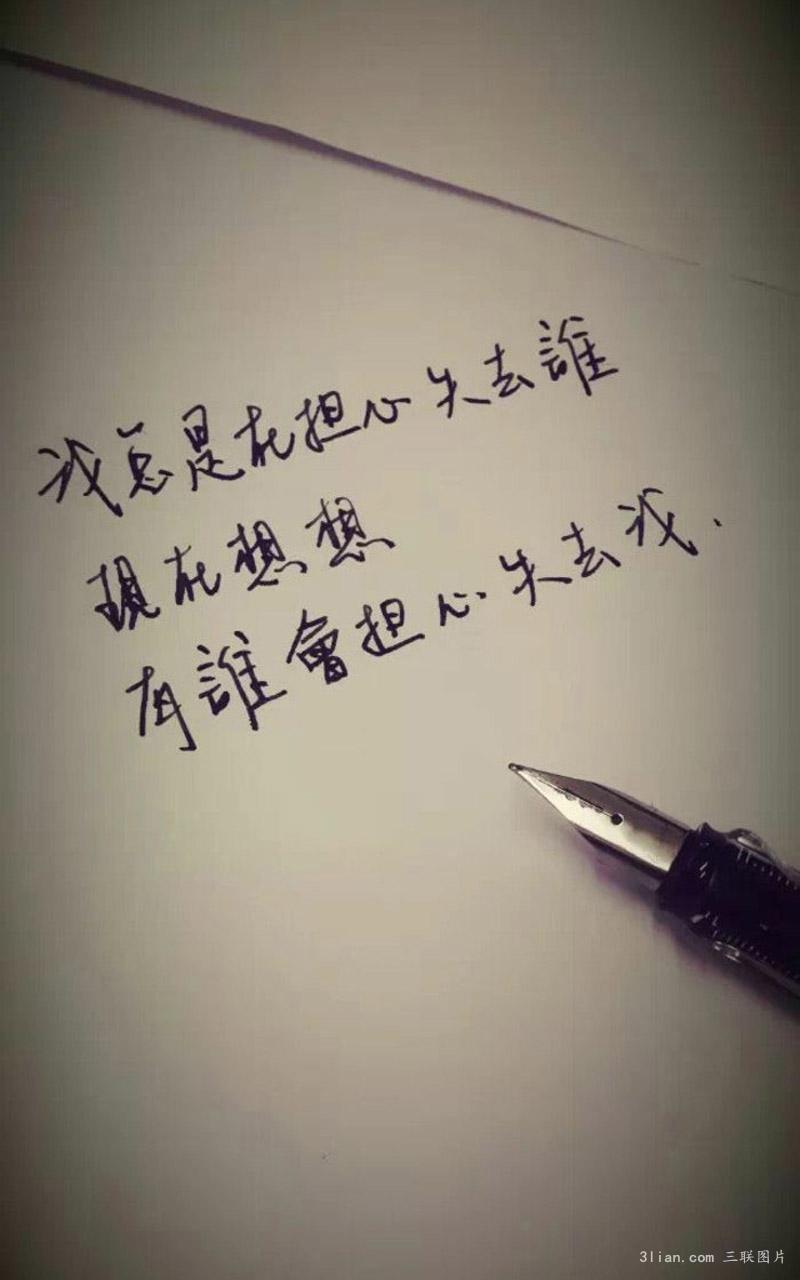 我总是在担心失去誰
現在想想
有誰會担心失去我.
3lian.com 三联图片